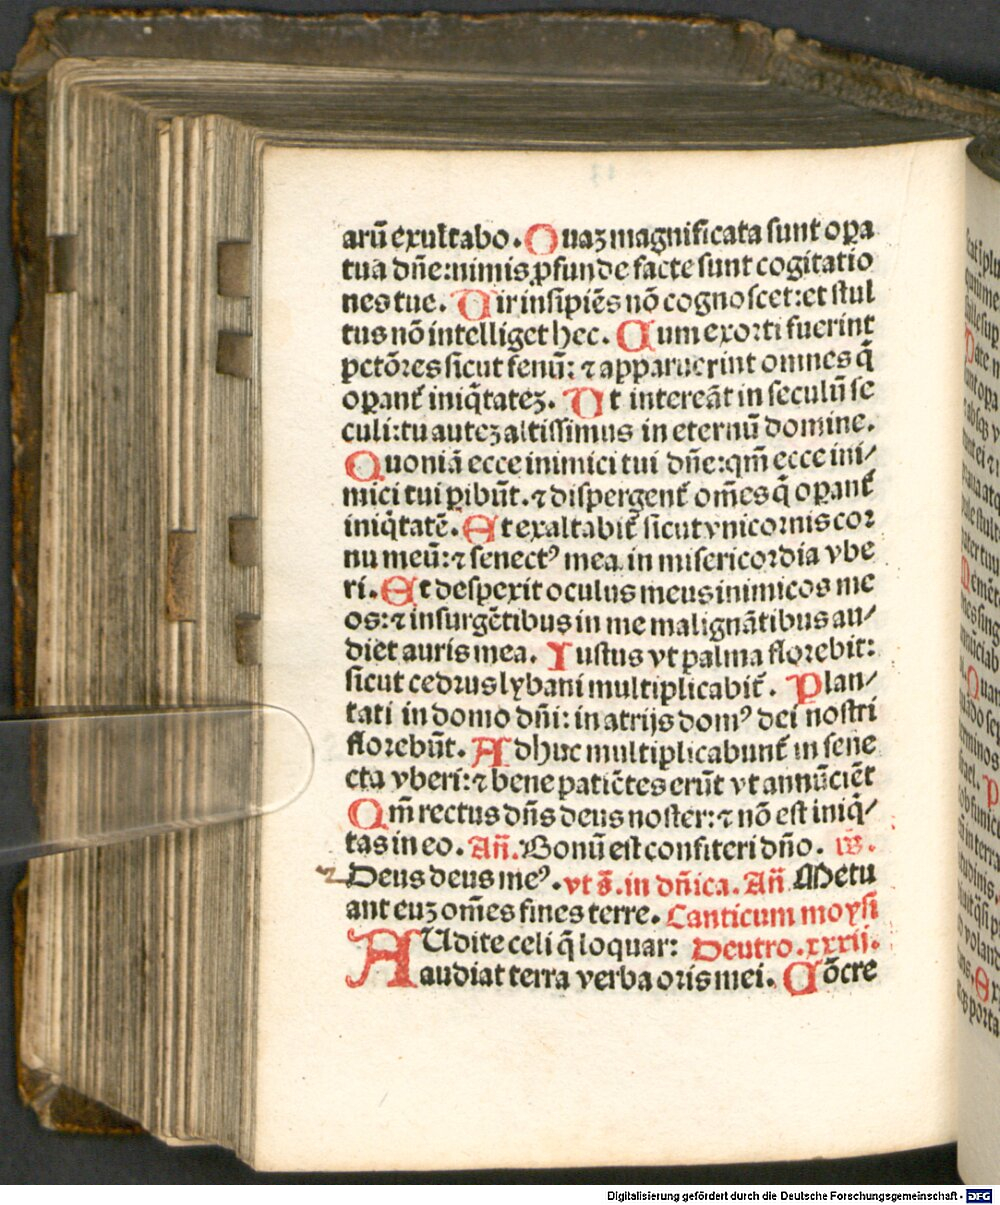 arū exultabo. Quaʒ magnificata sunt oꝑa
tua dn̄e: nimis ꝓfunde facte sunt cogitatio
nes tue. Uir insipiēs nō cognoscet: et stul
tus nō intelliget hec. Cum exorti fuerint
pctōres sicut fenū: ⁊ apparuerint omnes q̄
oꝑant̄ iniq̄tateʒ. Ut intereāt in seculū se
culi: tu auteʒ altissimus in eternū domine.
Quoniā ecce inimici tui dn̄e: qm̄ ecce ini/
mici tui ꝑibūt. ⁊ dispergent̄ om̄es q̄ oꝑant̄
iniq̄tatē. Et exaltabit̄ sicut vnicornis cor
nu meū: ⁊ senectꝰ mea in misericordia vbe
ri. Et despexit oculus meus inimicos me
os: ⁊ insurgētibus in me malignātibus au/
diet auris mea. Iustus vt palma florebit:
sicut cedrus lybani multiplicabit̄. Plan/
tati in domo dn̄i: in atrijs domꝰ dei nostri
florebūt. Adhuc multiplicabunt̄ in sene
cta vberi: ⁊ bene patiētes erūt vt annūciēt
Qm̄ rectus dn̄s deus noster: ⁊ nō est iniq̄/
tas in eo. Añ. Bonū est confiteri dn̄o.
Deus deus meꝰ. vt s̄. in dn̄ica. Añ Metu
ant euʒ om̄es fines terre. Canticum moysi
AUdite celi q̄ loquar: Deutro.xxxij.
audiat terra verba oris mei. Cōcre
Digitalisierung gefördert durch die Deutsche Forschungsgemeinschaft - DFG